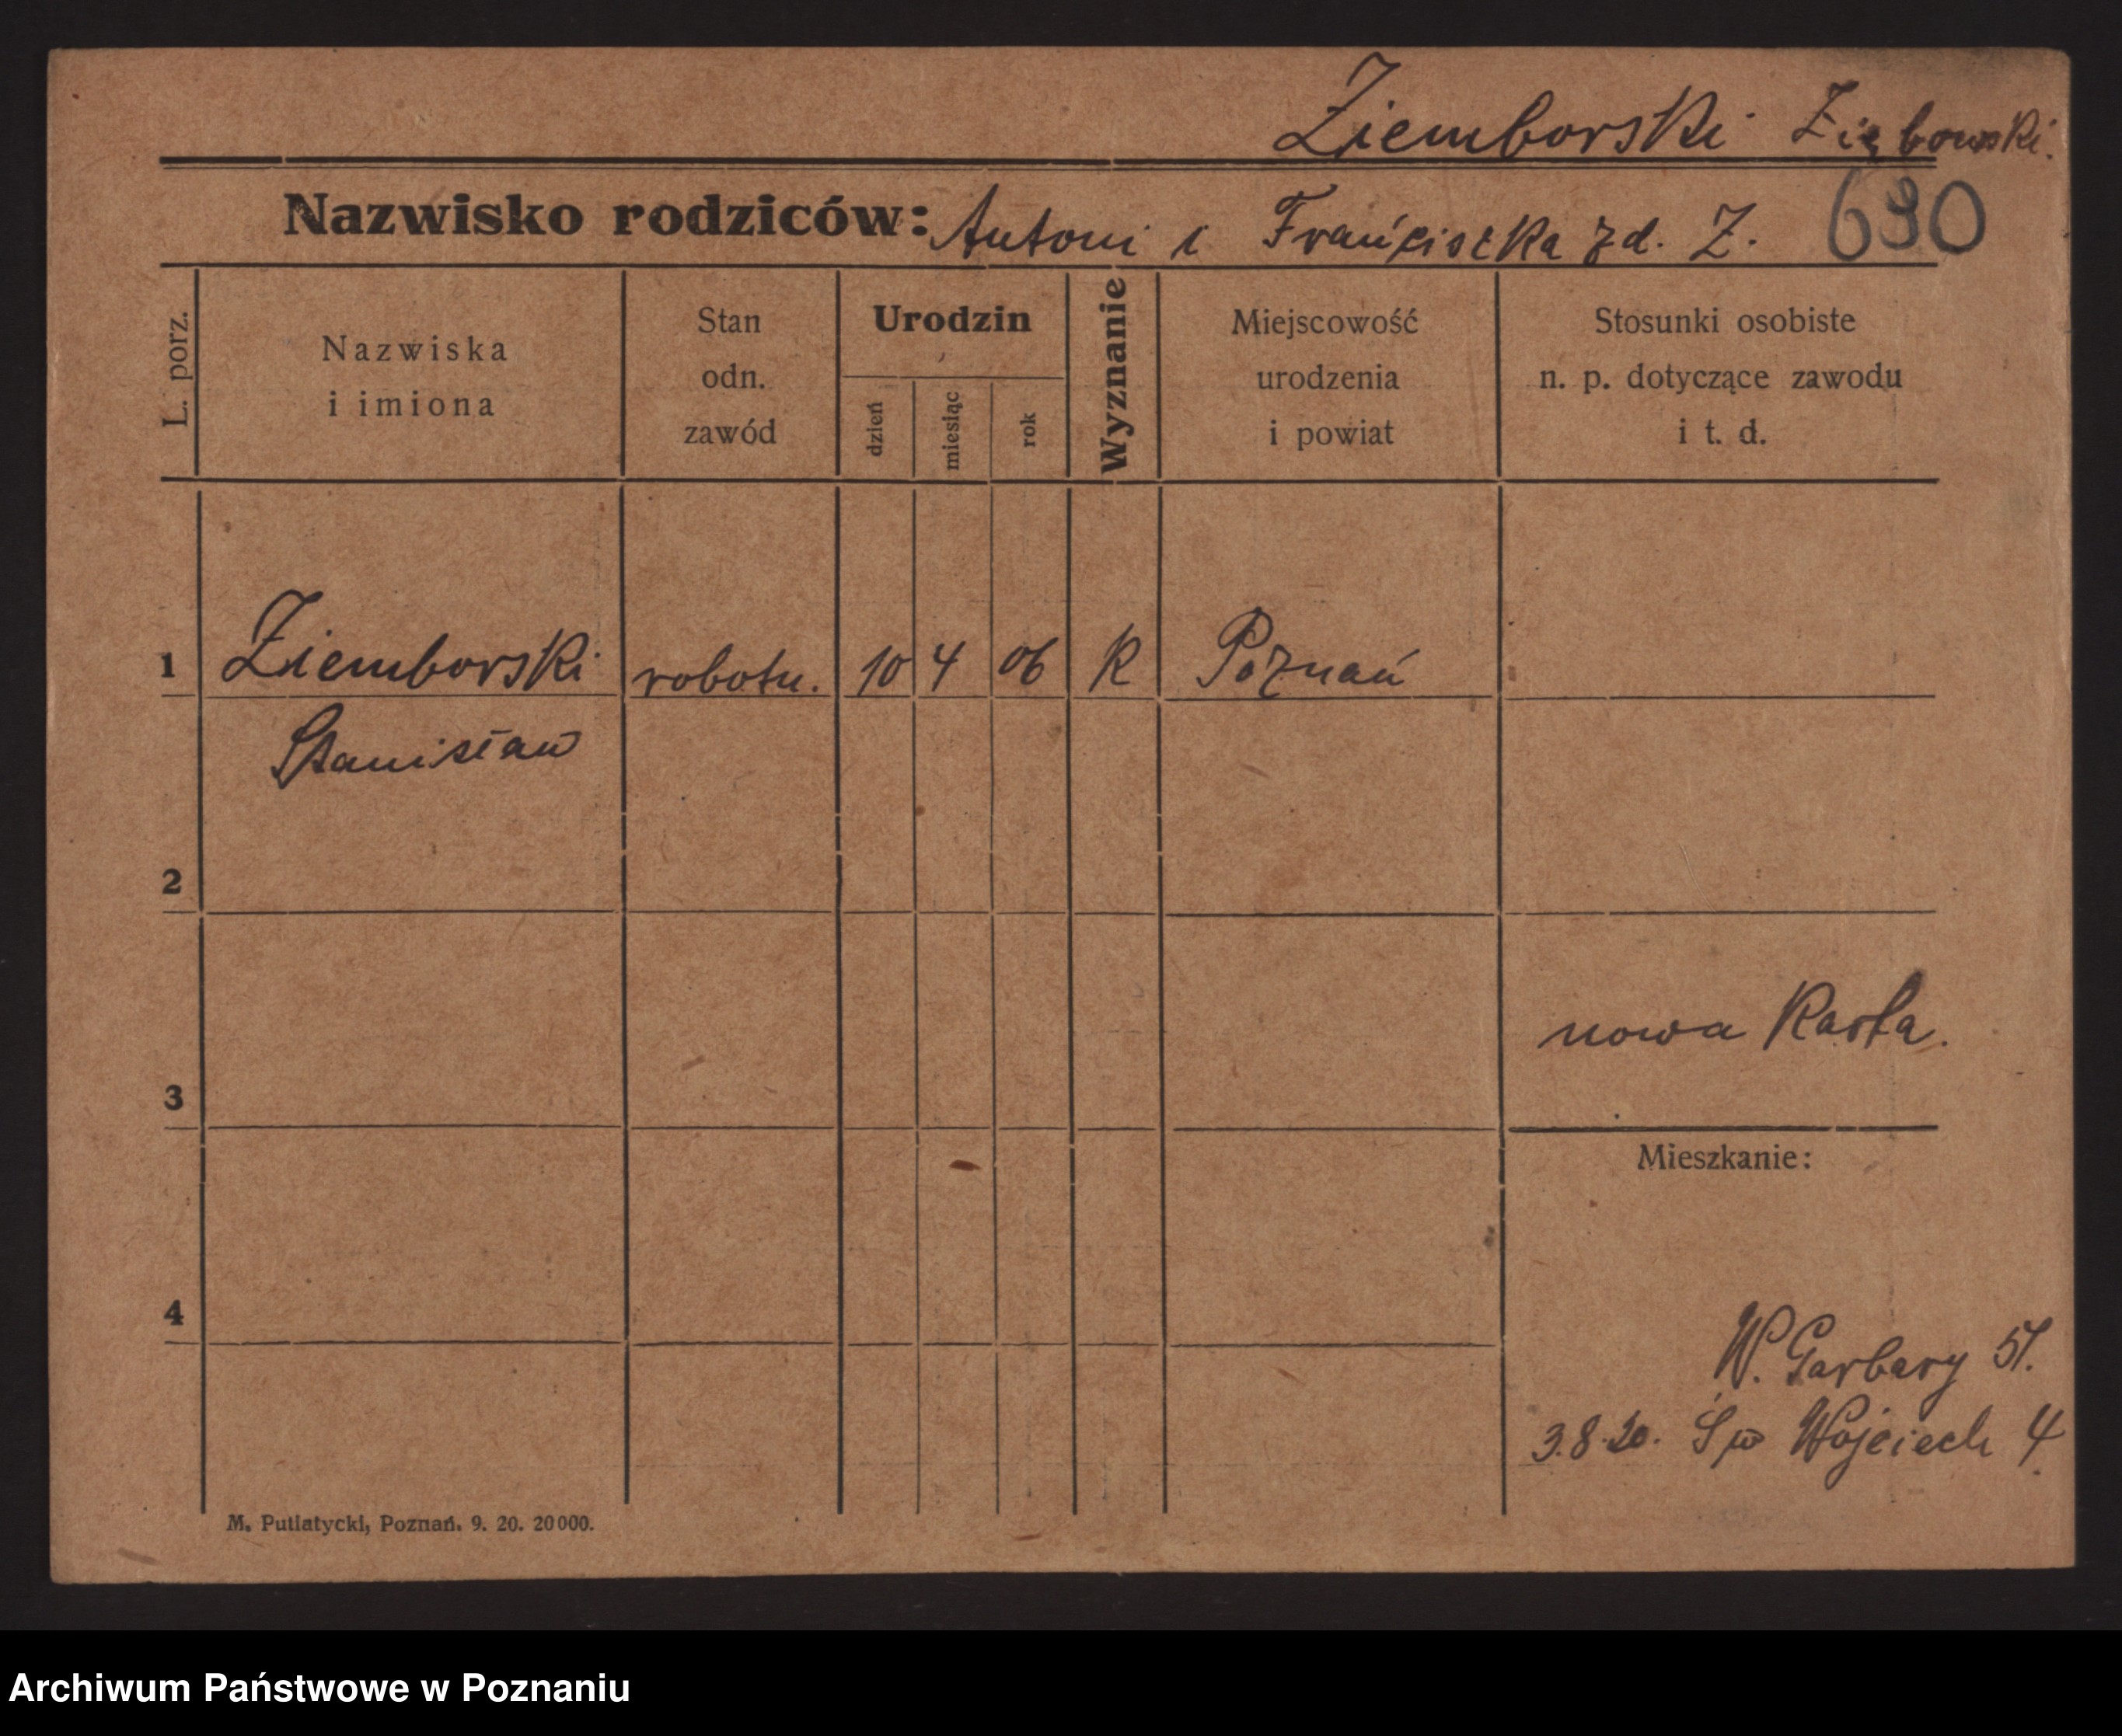 Ziemborski Ziębowski.
Nazwisko rodziców: Antoni i Frańciszka zd. Z. 690
L. porz.
Nazwiska
i imiona
Stan
odn.
zawód
Urodzin
dzień
miesiąc
rok
Wyznanie
Miejscowość
urodzenia
i powiat
Stosunki osobiste
n. p. dotyczące zawodu
i t. d.
1 Ziemborski robotn. 10 4 06 K Poznań
Stanisław
2
3
nowa Karta.
Mieszkanie:
4
W. Garbary 51.
3.8.20. Św Wojciech 4
M. Putiatycki, Poznań. 9. 20. 20000.
Archiwum Państwowe w Poznaniu